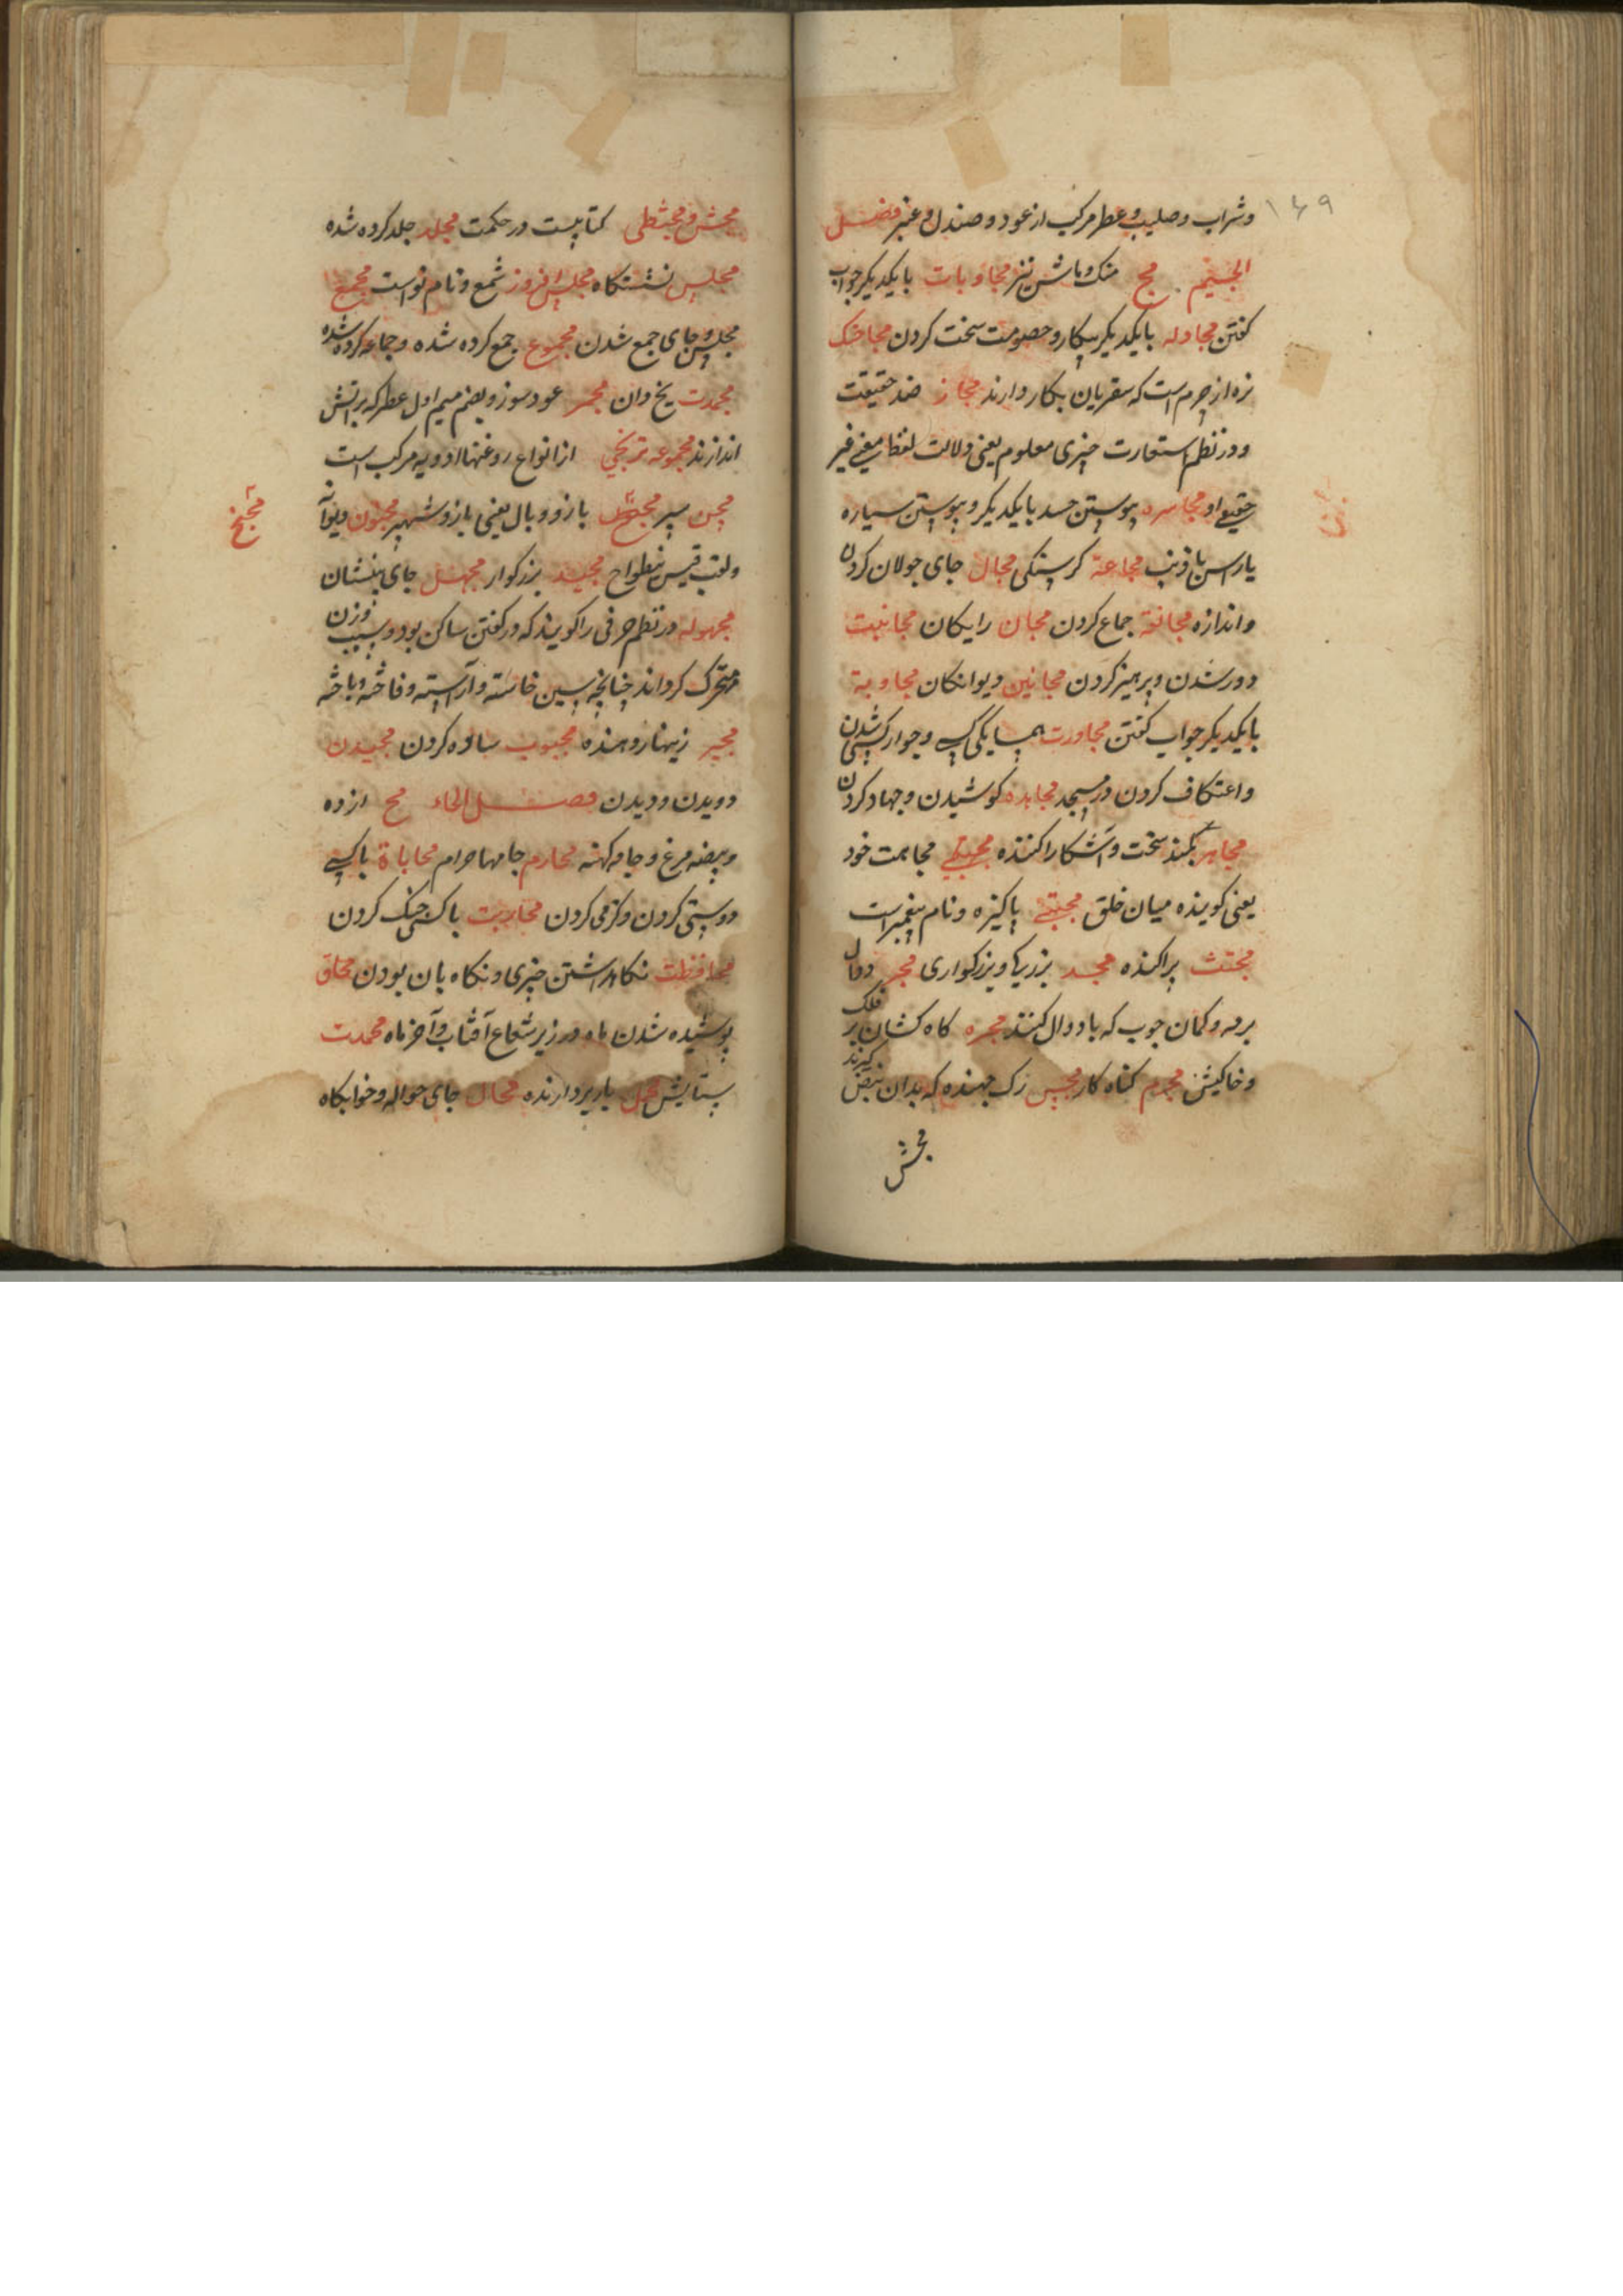 ۱۶۹
وشراب وصلیب وعطر مرکب از عود و صندل و عنبر فصل
الجیم مج منک و ماش نیز مجاوبات بایکدیکر جواب
کفتن مجادله بایکدیکر پیکار و خصومت سخت کردن
از چرم است که سفریان بکار دارند مجاز ضد حقیقت
ودر نظم استعارت چیزی معلوم یعنی دلالت لفظ بمعنی غیر
حقیقی او مجاسره پیوستن جسد بایکدیکر و پیوستن سیاره
یا راس یا ذنب مجاعة کرسنکی مجال جای جولان کردن
واندازه جماع کردن مجان رایکان مجانبت
دور شدن و پرهیز کردن مجانین دیوانکان مجاوبة
بایکدیکر جواب کفتن مجاورت همسایکی و جوار کسی شدن
واعتکاف کردن در مسجد مجاهده کوشیدن وجهاد کردن
مجاهر سخت واشکارا کننده خود
یعنی کوینده میان خلق مجتبی پاکیزه ونام پیغمبر است
مجتث پراکنده مجد بزرکی وبزرکواری مجر دوال
وکمان چوب که با دوال کنند مجره کاه کشان بر فلک
مجرم کناه کار مجس رک جهنده که بدان نبض کیرند
مجش
مجش و مجسطی کتابیست در حکمت مجلد جلد کرده شده
مجلس نشستکاه مجلس افروز شمع ونام نواست مجمع
مجلس و جای جمع شدن مجموع جمع کرده شده وجماعه کرده شده
مجمدت یخ دان مجمر عود سوز وبضم میم اول عطر که براتش
اندازند مجموعه از انواع روغنها ادویه مرکب است
مجن سپر بازو وبال یعنی بازو شهپر مجنون دیوانه
ولقب قیس مجید بزرکوار مجهل جای بینشان
مجهوله در نظم حرفی را کویند که در کفتن ساکن بود وبسبب وزن
متحرک کرداند چنانچه سین خاسته وآراسته وفاخته وباخته
مجیر زینهار دهنده مجبوب ساده کردن مجیدن
دویدن ودیدن فصل الحاء مح زرده
وبیضه مرغ و جامه کهنه محارم جامها حرام محاباة باکسی
دوستی کردن و کرمی کردن محاربت باکسی جنک کردن
محافظت نکاه داشتن چیزی ونکاه بان بودن محاق
پوشیده شدن ماه در زیر شعاع آفتاب وآخر ماه محمدت
ستایش محمل باربردارنده محال جای حواله وخوابکاه